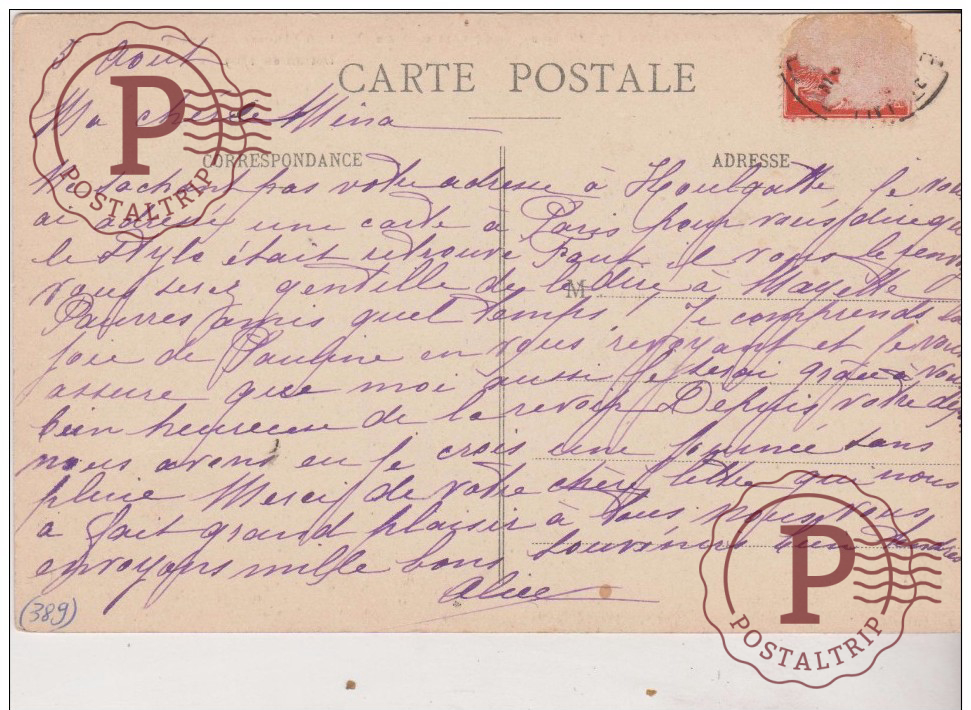 5 Août
CARTE POSTALE
Ma chère Mina
CORRESPONDANCE
ADRESSE
Ne sachant pas votre adresse à Houlgatte je vous
ai adressé une carte à Paris pour vous dire que
le stylo était retrouvé Faut il vous le renvoy
vous serez gentille de le dire à Mayette
M
Pauvres amis quel temps! Je comprends la
joie de Pauline en vous revoyant et je vous
assure que moi aussi je serai grâce à vous
bien heureuse de la revoir Depuis votre dép
nous avons eu je crois une journée sans
pluie Merci de votre chère lettre qui nous
a fait grand plaisir à tous nous vous
envoyons mille bons souvenirs bien tendres
Alice
(389)
P
POSTALTRIP
P
POSTALTRIP